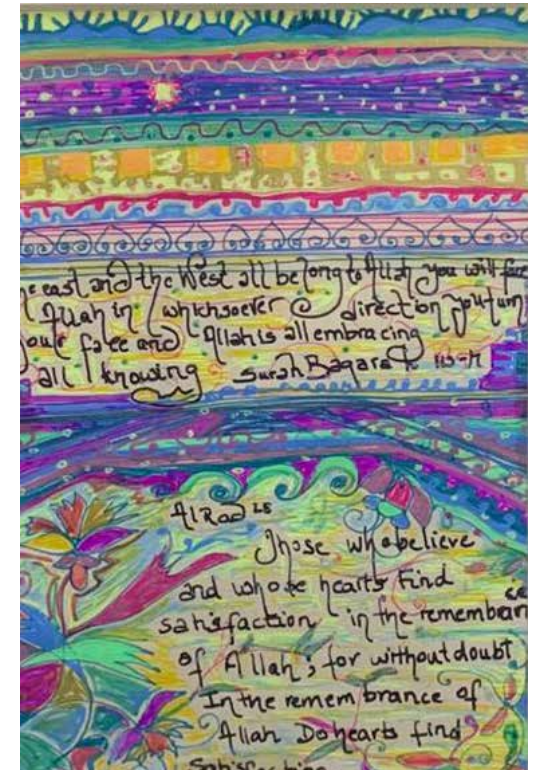 east and the West all belong to Allah you will face
Allah in whichsoever direction you turn
your face and Allah is all embracing
all knowing Surah Baqara
Al Rad 28
Those who believe
and whose hearts find
satisfaction in the remembran ce
of Allah; for without doubt
In the remembrance of
Allah Do hearts find
Satisfaction